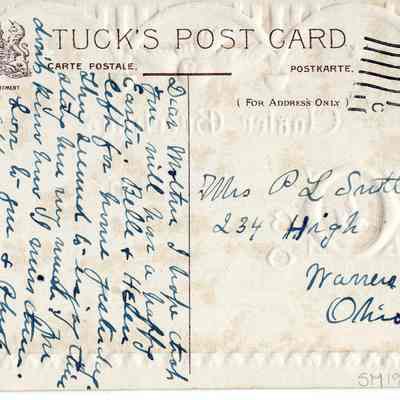 TUCK'S POST CARD
CARTE POSTALE.
POSTKARTE.
( FOR ADDRESS ONLY )
C
Mrs P L Smith
234 High
Warren
Ohio
Dear Mother I hope that
you will have a happy
Easter. Bell & Helen
left for home yesterday.
They seemed to enjoy their
stay here very much I
dont know how
Love to you &
SM19